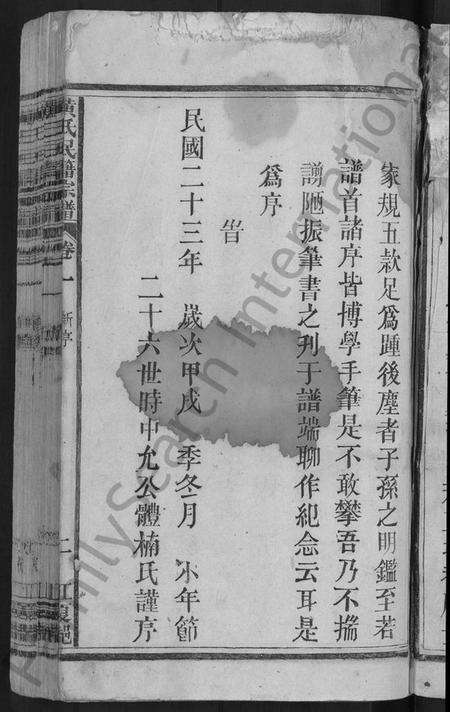 家規五款足爲踵後塵者子孫之明鑑至若
譜首諸序皆博學手筆是不敢攀吾乃不揣
謭陋振筆書之刋于譜端聊作紀念云耳是
爲序
旹
民國二十三年 歲次甲戌 季冬月 小年節
二十六世時中允公體楠氏謹序
黃氏民籍宗譜 卷一 新序 二 江夏
FamilySearch International